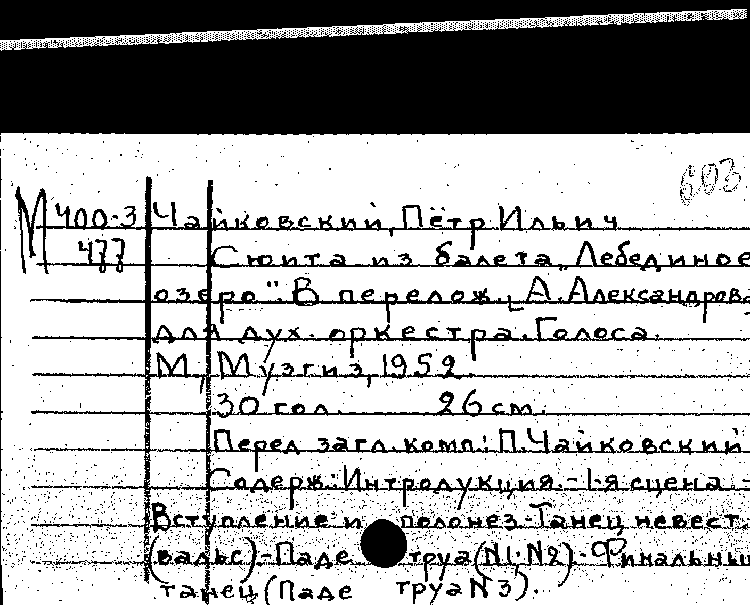 603
М 400-3 Чайковский, Пётр Ильич
477 Сюита из балета „Лебединое
озеро". В перелож. А. Александрова
для дух. оркестра. Голоса.
М., Музгиз, 1952.
30 гол. 26 см.
Перед загл. комп.: П. Чайковский
Содерж: Интродукция. - 1-я сцена. -
Вступление и полонез - Танец невест.
(вальс) - Па де труа (N1, N2) - Финальный
танец (Па де труа N3).